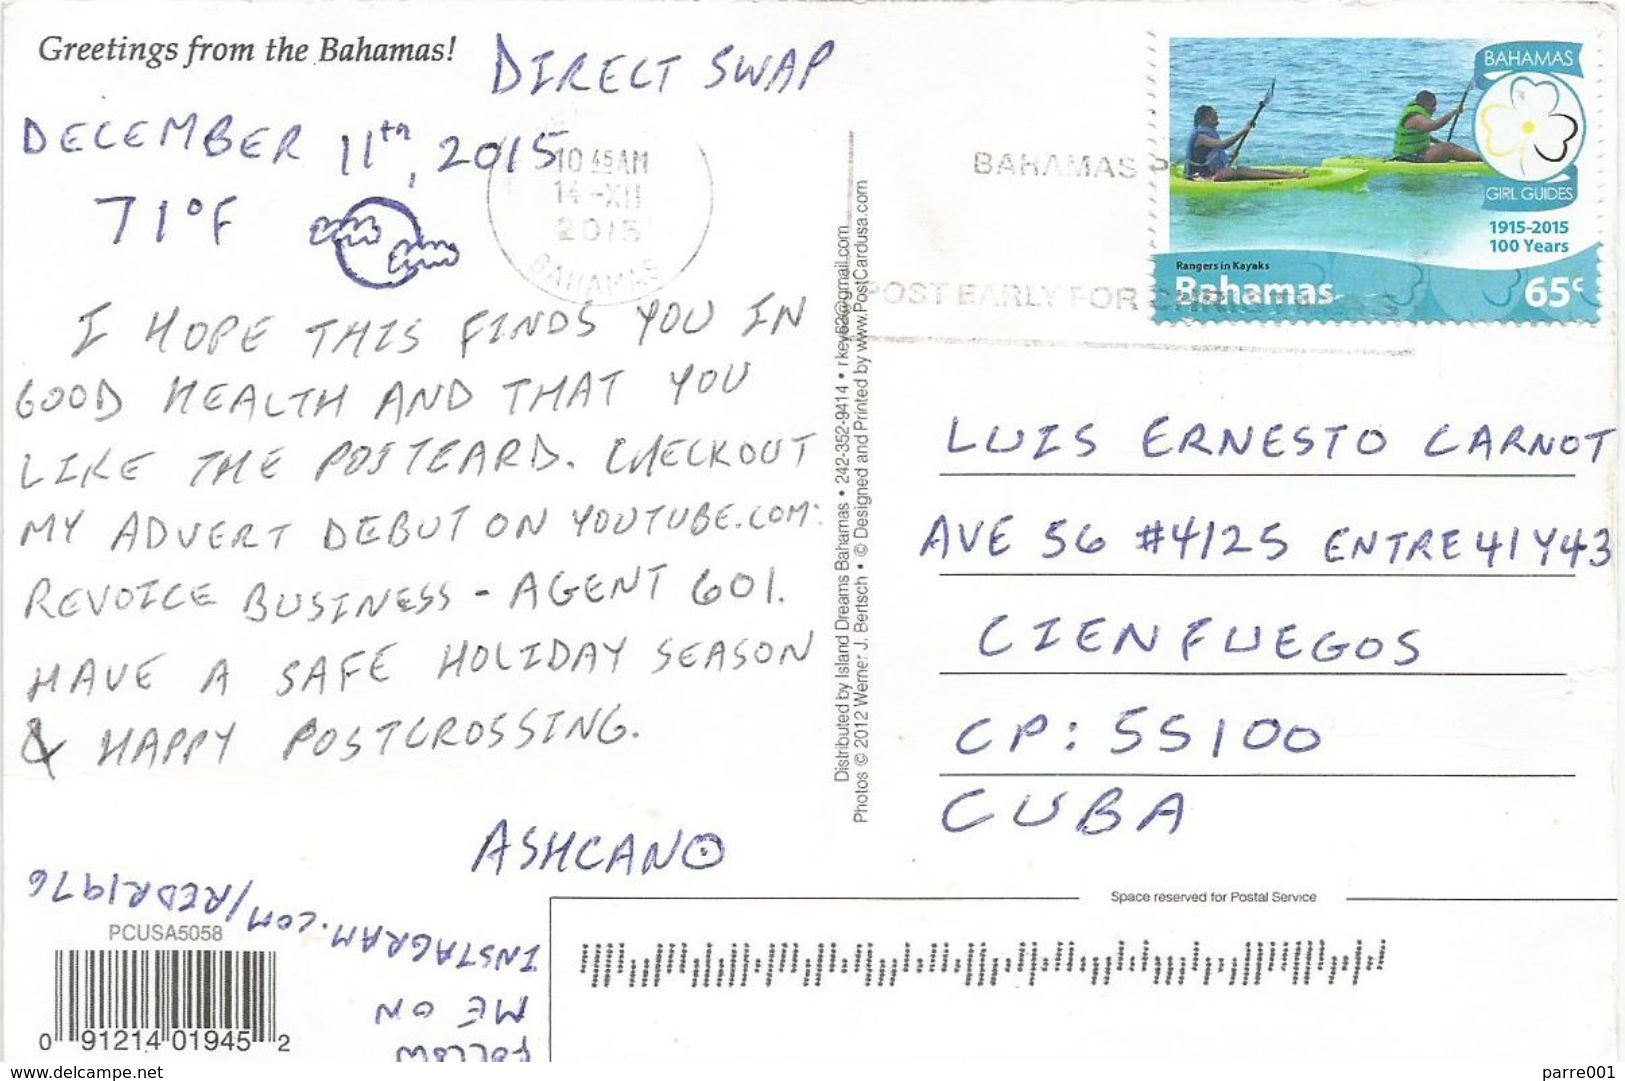 Greetings from the Bahamas!
DIRECT SWAP
DECEMBER 11th, 2015
71°F
10 45AM
14-XII
2015
BAHAMAS
I HOPE THIS FINDS YOU IN
GOOD HEALTH AND THAT YOU
LIKE THE POSTCARD. CHECKOUT
MY ADVERT DEBUT ON YOUTUBE.COM:
REVOICE BUSINESS - AGENT 601.
HAVE A SAFE HOLIDAY SEASON
& HAPPY POSTCROSSING.
ASHCANO
FOLLOW
ME ON
INSTAGRAM.COM/REDR1976
PCUSA5058
0 91214 01945 2
Distributed by Island Dreams Bahamas • 242-352-9414 • rkey62@gmail.com
Photos © 2012 Werner J. Bertsch • © Designed and Printed by www.PostCardusa.com
BAHAMAS
POST EARLY FOR CHRISTMAS
BAHAMAS
GIRL GUIDES
1915-2015
100 Years
Rangers in Kayaks
Bahamas
65c
LUIS ERNESTO CARNOT
AVE 56 #4125 ENTRE 41 Y 43
CIENFUEGOS
CP: 55100
CUBA
Space reserved for Postal Service
www.delcampe.net
parre001